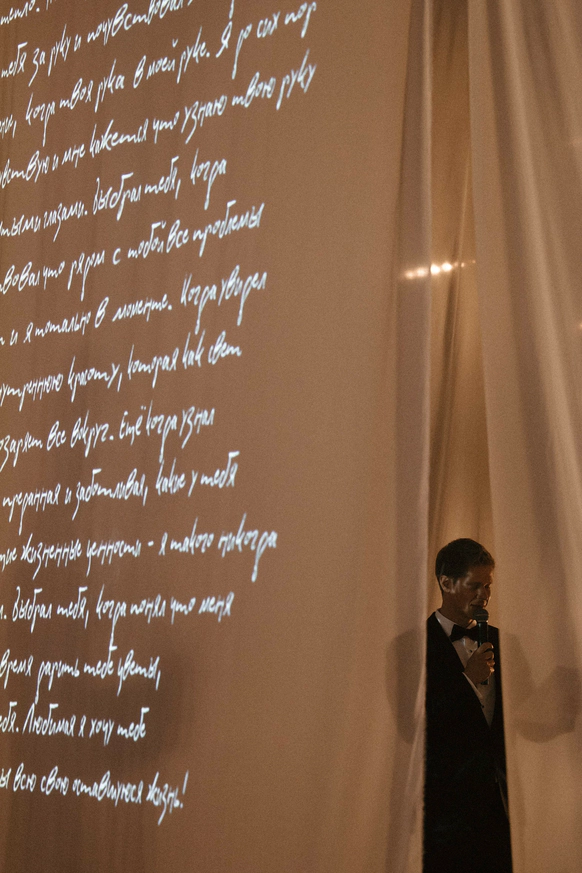 тебя за руку и почувствовал
когда твоя рука в моей руке. Я до сих пор
чувствую и мне кажется что узнаю твою руку
глазами. Выбрал тебя, когда
что рядом с тобой все проблемы
и я тотально в моменте. Когда увидел
внутреннюю красоту, которая как свет
озаряет все вокруг. Ещё когда узнал
преданная и заботливая, какие у тебя
жизненные ценности - я такого никогда
Выбрал тебя, когда понял что меня
время дарить тебе цветы,
Любимая я хочу тебе
всю свою оставшуюся жизнь!